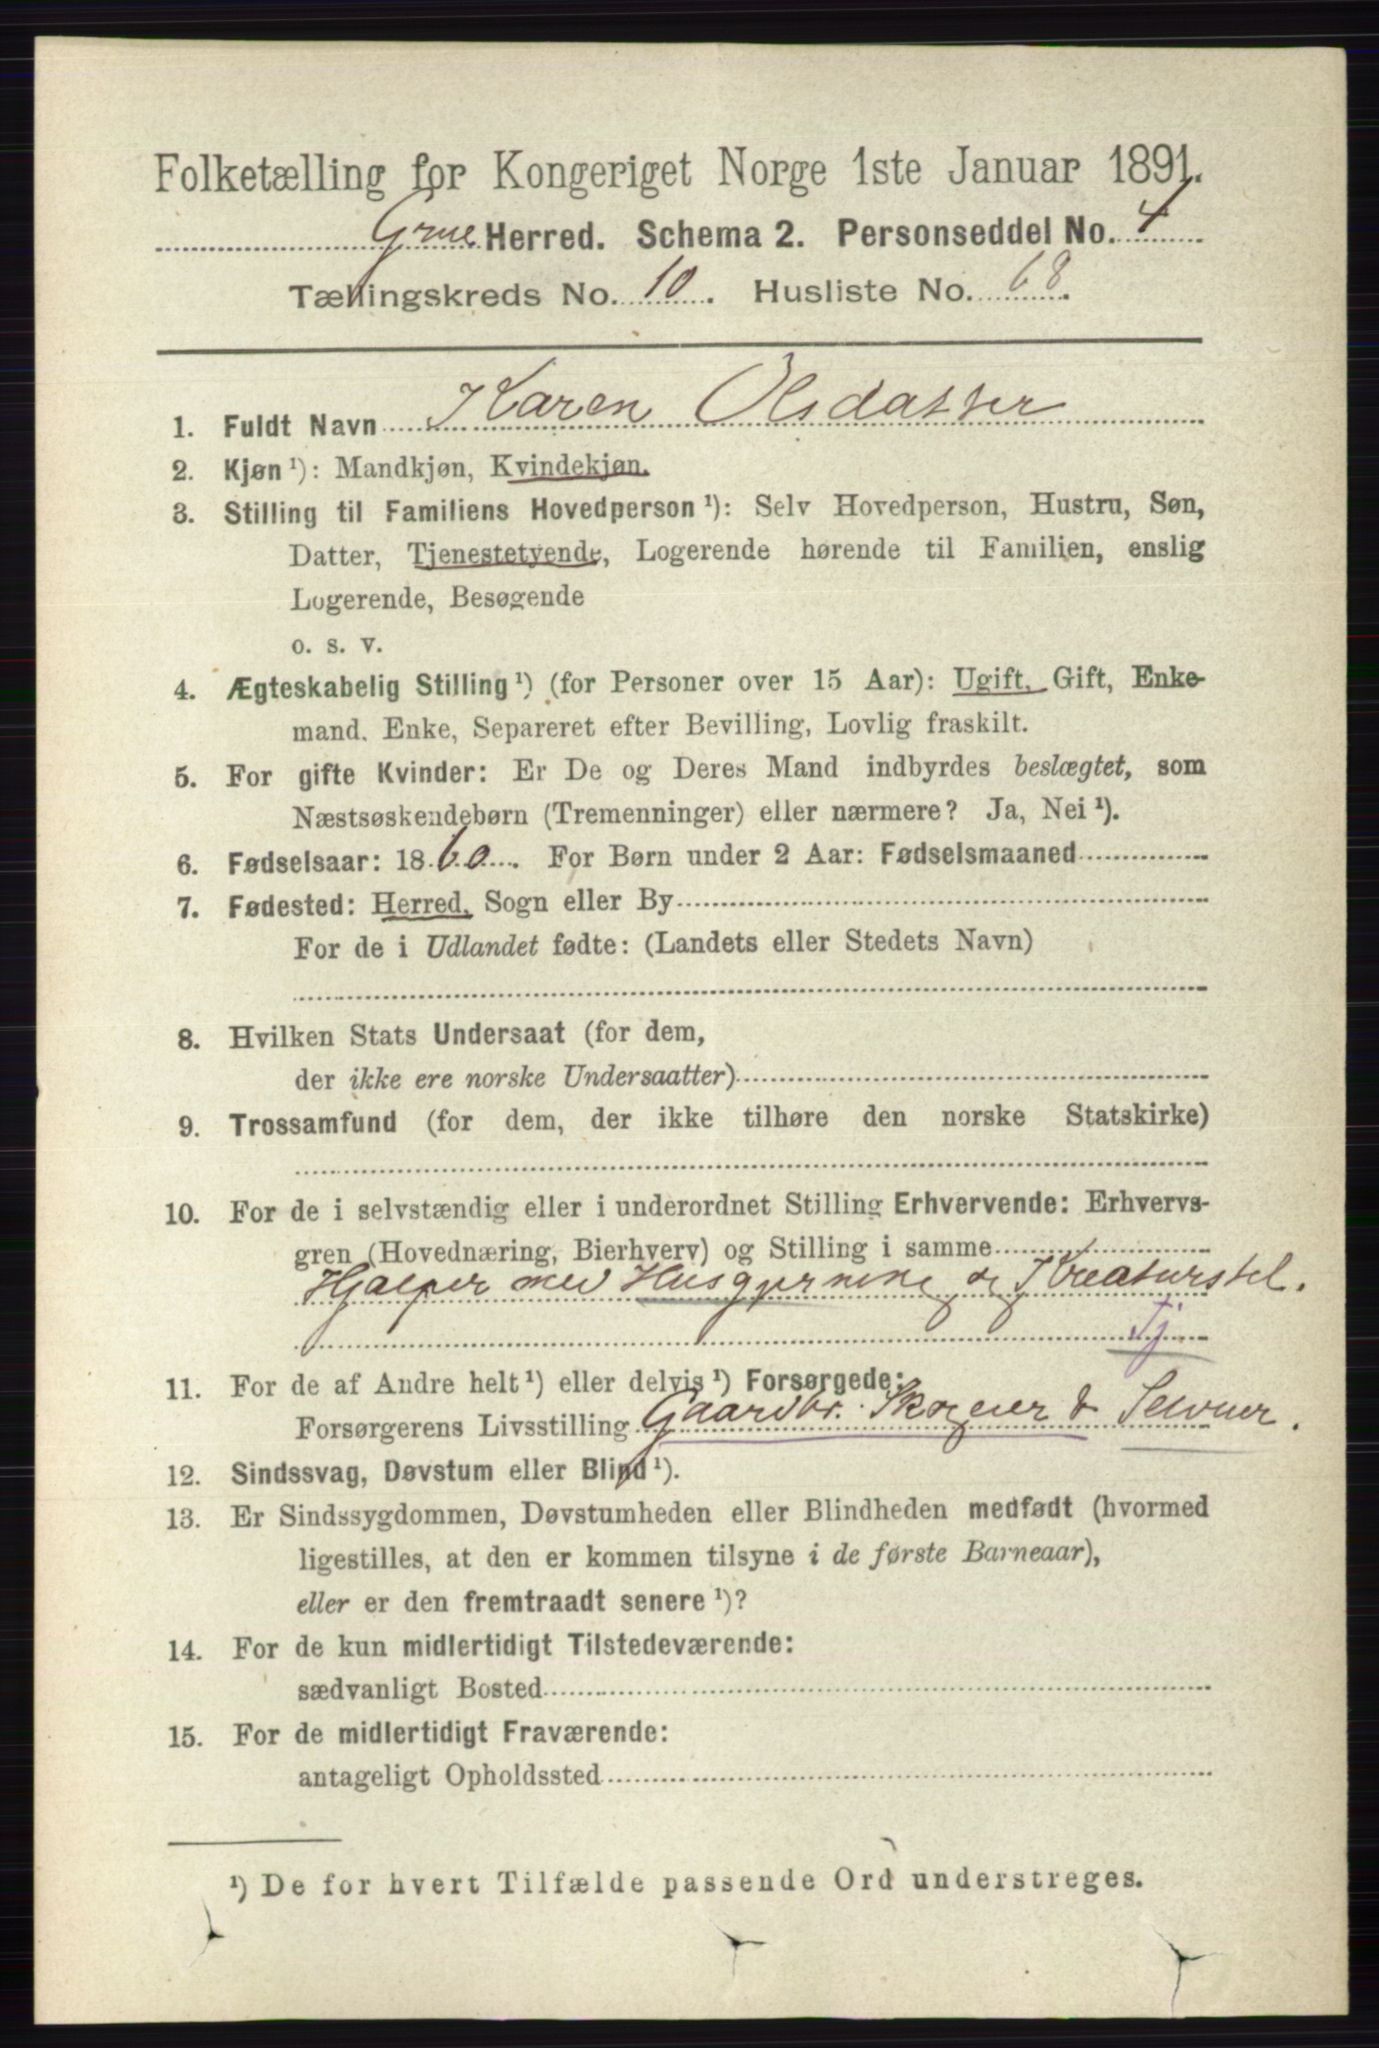 Folketælling for Kongeriget Norge 1ste Januar 1891.
Grue Herred. Schema 2. Personseddel No. 4
Tællingskreds No. 10. Husliste No. 68.
1. Fuldt Navn Karen Olsdatter
2. Kjøn ¹): Mandkjøn, Kvindekjøn.
3. Stilling til Familiens Hovedperson ¹): Selv Hovedperson, Hustru, Søn,
Datter, Tjenestetyende, Logerende hørende til Familien, enslig
Logerende, Besøgende
o. s. v.
4. Ægteskabelig Stilling ¹) (for Personer over 15 Aar): Ugift, Gift, Enke-
mand, Enke, Separeret efter Bevilling, Lovlig fraskilt.
5. For gifte Kvinder: Er De og Deres Mand indbyrdes beslægtet, som
Næstsøskendebørn (Tremenninger) eller nærmere? Ja, Nei ¹).
6. Fødselsaar: 1860. For Børn under 2 Aar: Fødselsmaaned
7. Fødested: Herred, Sogn eller By
For de i Udlandet fødte: (Landets eller Stedets Navn)
8. Hvilken Stats Undersaat (for dem,
der ikke ere norske Undersaatter)
9. Trossamfund (for dem, der ikke tilhøre den norske Statskirke)
10. For de i selvstændig eller i underordnet Stilling Erhvervende: Erhvervs-
gren (Hovednæring, Bierhverv) og Stilling i samme
Hjælper med Husgjerning og Kreaturstel.
Tj.
11. For de af Andre helt ¹) eller delvis ¹) Forsørgede:
Forsørgerens Livsstilling Gaardbr. Skogeier &
12. Sindssvag, Døvstum eller Blind ¹).
13. Er Sindssygdommen, Døvstumheden eller Blindheden medfødt (hvormed
ligestilles, at den er kommen tilsyne i de første Barneaar),
eller er den fremtraadt senere ¹)?
14. For de kun midlertidigt Tilstedeværende:
sædvanligt Bosted
15. For de midlertidigt Fraværende:
antageligt Opholdssted
¹) De for hvert Tilfælde passende Ord understreges.